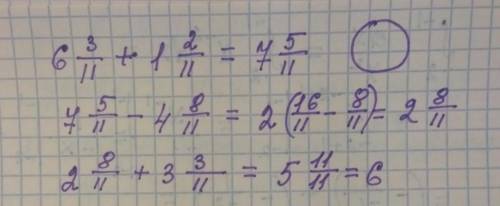 6 3/11 + 1 2/11 = 7 5/11
7 5/11 - 4 8/11 = 2 (16/11 - 8/11) = 2 8/11
2 8/11 + 3 3/11 = 5 11/11 = 6